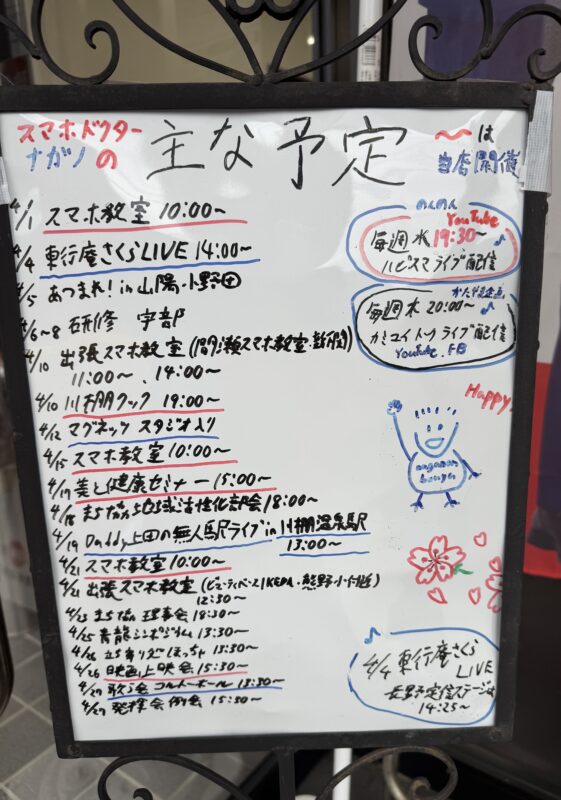 スマホドクター
ナガノの
主な予定
〜は
当店開催
4/1 スマホ教室 10:00〜
4/4 東行庵さくらLIVE 14:00〜
4/5 あつまれ! in 山陽小野田
4/6〜8 研修 宇部
4/10 出張スマホ教室 (間瀬スマホ教室・新館)
11:00〜、14:00〜
4/10 川棚クック 19:00〜
4/12 マグネッツ スタジオ入り
4/15 スマホ教室 10:00〜
4/17 美と健康セミナー 15:00〜
4/18 まち協 地域活性化部会 18:00〜
4/19 Daddy上田の無人駅ライブ in 川棚温泉駅
13:00〜
4/21 スマホ教室 10:00〜
4/21 出張スマホ教室 (ビューティベース IKEDA・熊野小前)
12:30〜
4/23 まち協 理事会 18:30〜
4/25 青龍シンポジウム 13:30〜
4/26 立ち寄りだぼっちゃ 13:30〜
4/26 映画上映会 15:30〜
4/27 歌う会 コルトーホール 13:30〜
4/27 発揮会 例会 15:30〜
のんのん
YouTube
毎週水 19:30〜
ハピスマライブ配信
毎週木 20:00〜
カミコイトークライブ配信
YouTube, FB
Happy
naganon
bangu
4/4 東行庵さくら
LIVE
長野定信ステージは
14:25〜